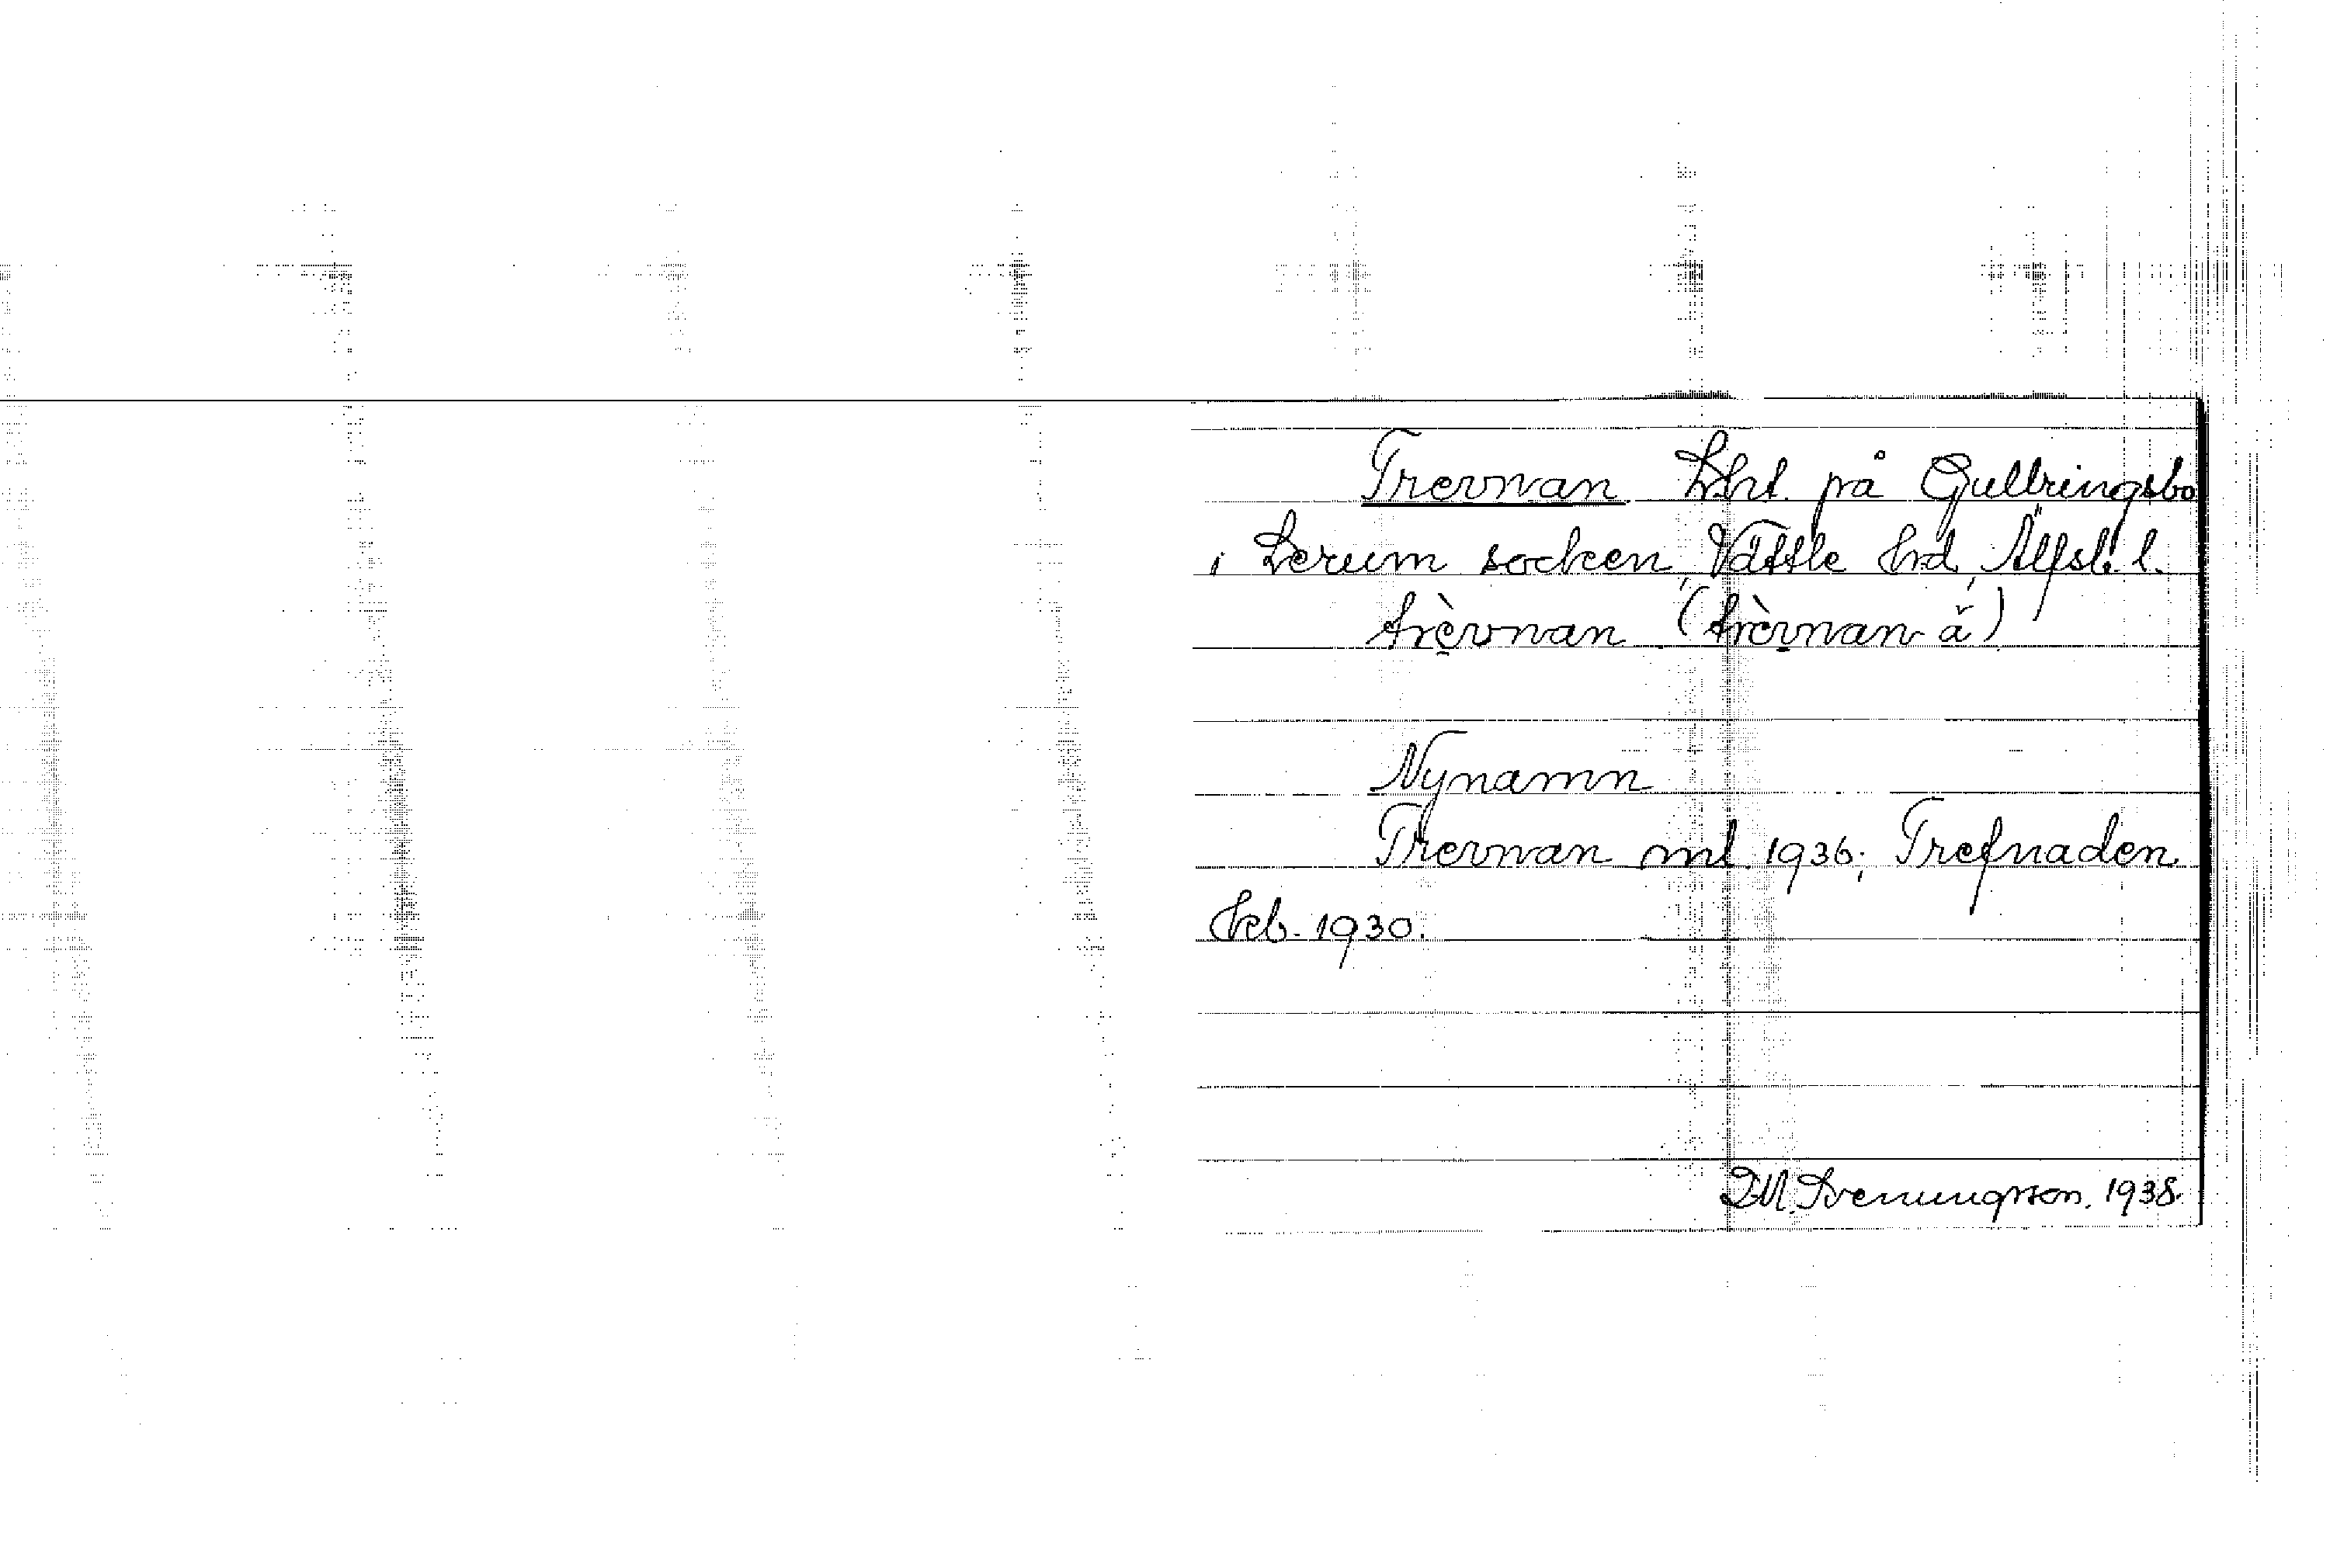 Trevnan Lht. på Gullringsbo
i Lerum socken, Vättle hd, Älfsb. l.
trèvnan (trèvnan ă)
Nynamn
Trevnan ml. 1936; Trefnaden
Jeb. 1930.
D.M. Svenungsson. 1938.